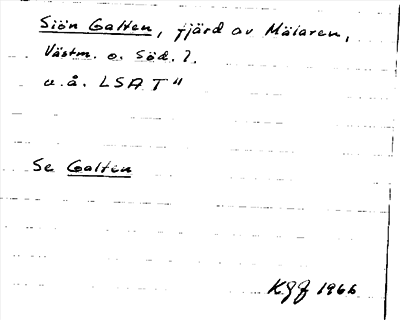 Siön Galten, fjärd av Mälaren,
Västm. o. Söd. l.
u.å. LSA T"
Se Galten
KGF 1966